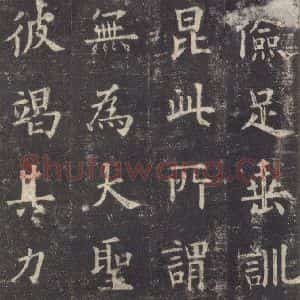 儉足垂訓
昆此所謂
無為大聖
彼竭其力
Shufawang.CN